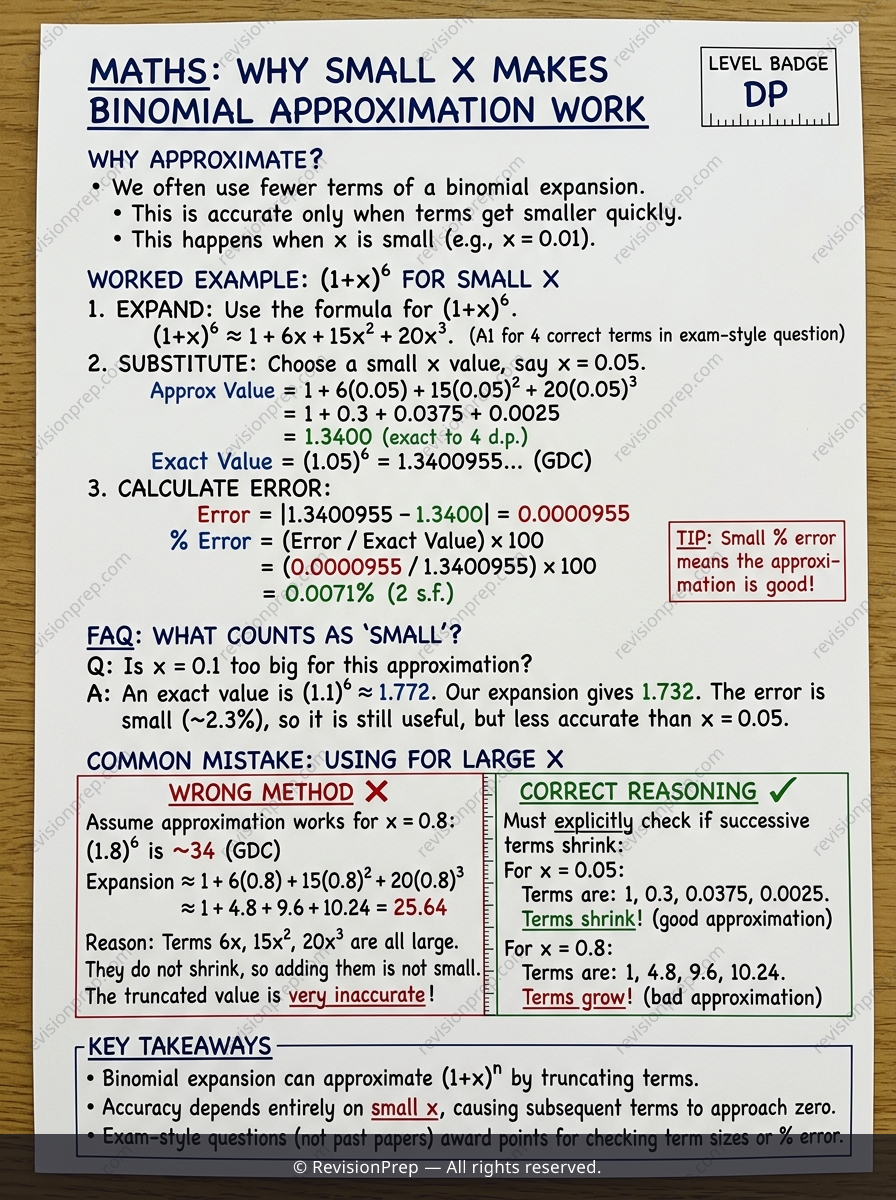 MATHS: WHY SMALL X MAKES
BINOMIAL APPROXIMATION WORK
LEVEL BADGE
DP
WHY APPROXIMATE?
• We often use fewer terms of a binomial expansion.
• This is accurate only when terms get smaller quickly.
• This happens when x is small (e.g., x = 0.01).
WORKED EXAMPLE: (1+x)⁶ FOR SMALL X
1. EXPAND: Use the formula for (1+x)⁶.
(1+x)⁶ ≈ 1 + 6x + 15x² + 20x³. (A1 for 4 correct terms in exam-style question)
2. SUBSTITUTE: Choose a small x value, say x = 0.05.
Approx Value = 1 + 6(0.05) + 15(0.05)² + 20(0.05)³
= 1 + 0.3 + 0.0375 + 0.0025
= 1.3400 (exact to 4 d.p.)
Exact Value = (1.05)⁶ = 1.3400955... (GDC)
3. CALCULATE ERROR:
Error = |1.3400955 – 1.3400| = 0.0000955
% Error = (Error / Exact Value) × 100
= (0.0000955 / 1.3400955) × 100
= 0.0071% (2 s.f.)
TIP: Small % error
means the approxi-
mation is good!
FAQ: WHAT COUNTS AS ‘SMALL’?
Q: Is x = 0.1 too big for this approximation?
A: An exact value is (1.1)⁶ ≈ 1.772. Our expansion gives 1.732. The error is
small (~2.3%), so it is still useful, but less accurate than x = 0.05.
COMMON MISTAKE: USING FOR LARGE X
WRONG METHOD ✗
Assume approximation works for x = 0.8:
(1.8)⁶ is ~34 (GDC)
Expansion ≈ 1 + 6(0.8) + 15(0.8)² + 20(0.8)³
≈ 1 + 4.8 + 9.6 + 10.24 = 25.64
Reason: Terms 6x, 15x², 20x³ are all large.
They do not shrink, so adding them is not small.
The truncated value is very inaccurate!
CORRECT REASONING ✓
Must explicitly check if successive
terms shrink:
For x = 0.05:
Terms are: 1, 0.3, 0.0375, 0.0025.
Terms shrink! (good approximation)
For x = 0.8:
Terms are: 1, 4.8, 9.6, 10.24.
Terms grow! (bad approximation)
KEY TAKEAWAYS
• Binomial expansion can approximate (1+x)ⁿ by truncating terms.
• Accuracy depends entirely on small x, causing subsequent terms to approach zero.
• Exam-style questions (not past papers) award points for checking term sizes or % error.
© RevisionPrep — All rights reserved.
revisionprep.com